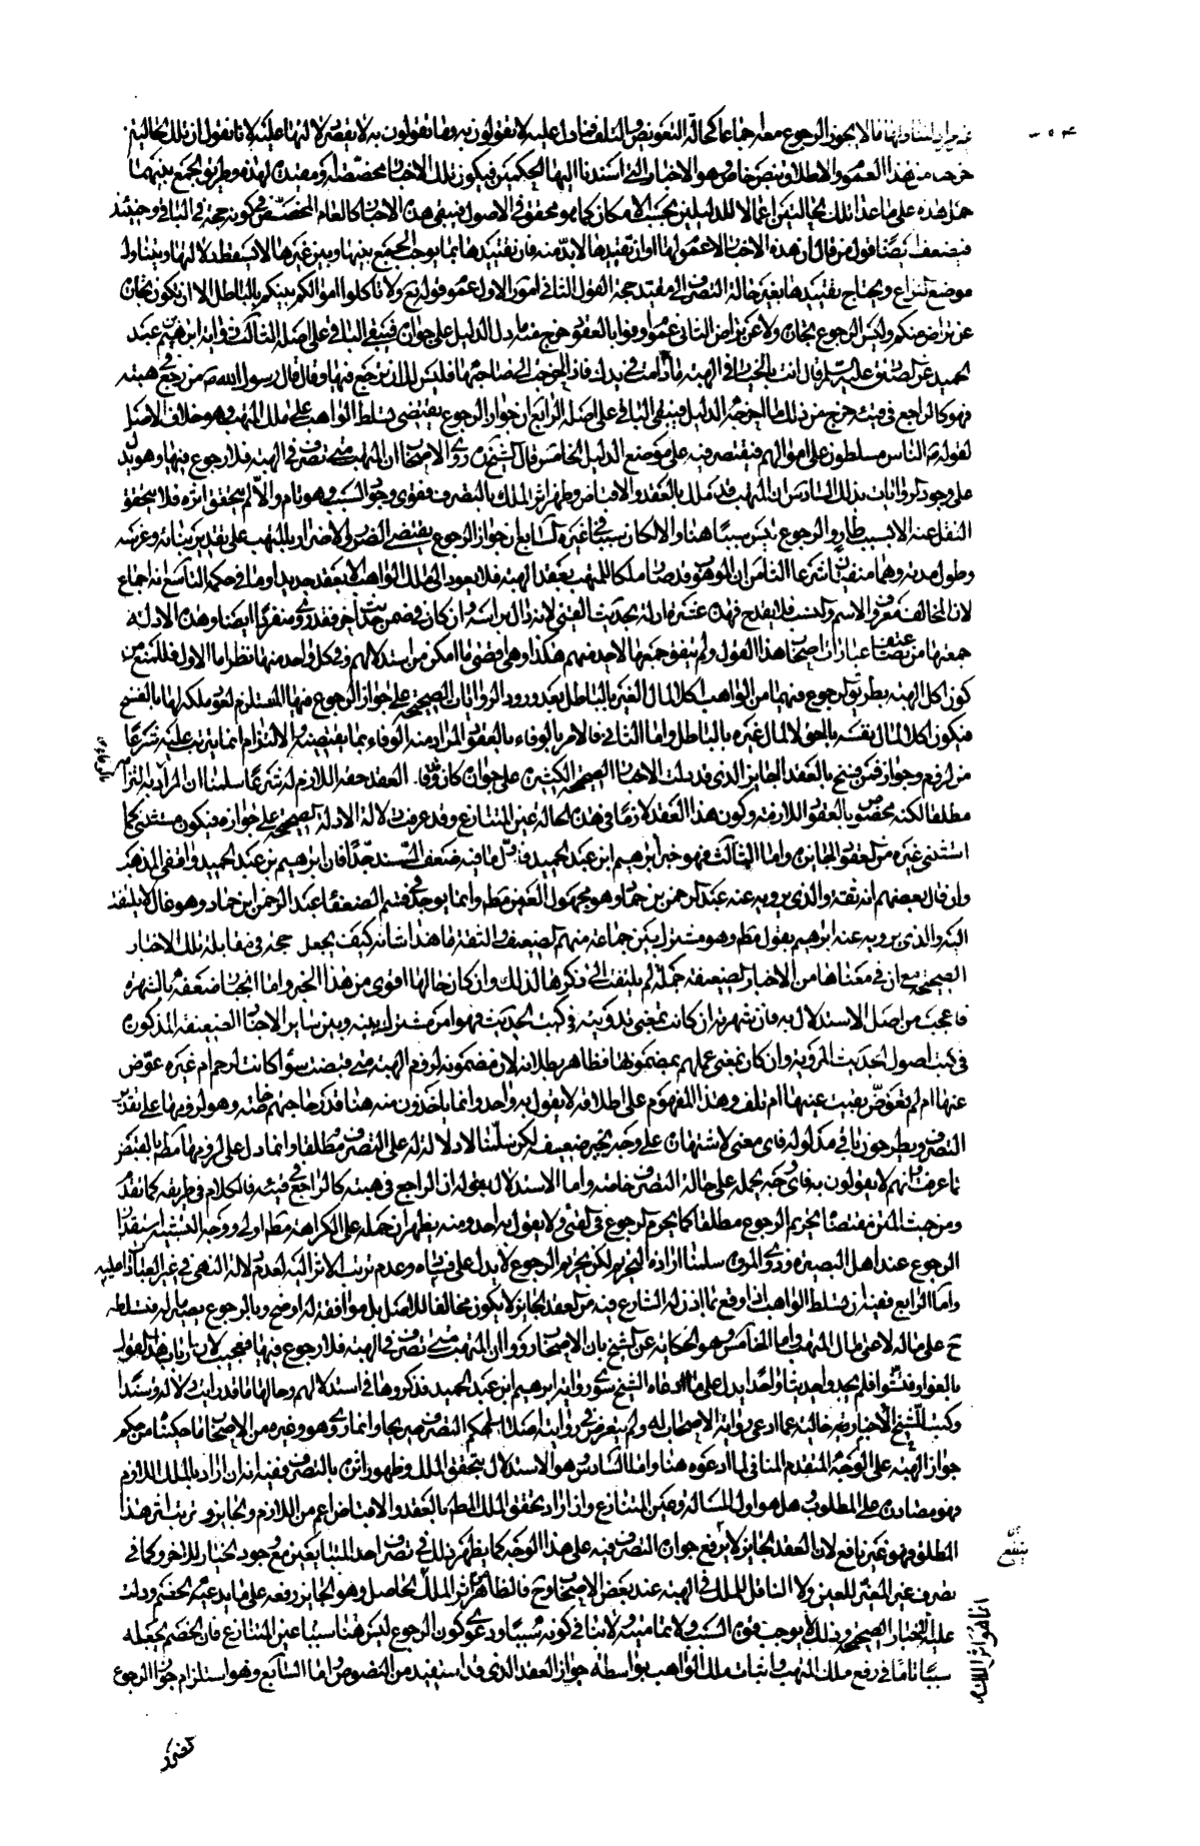 لتناولها ما لا يجوز الرجوع معه اجماعا كحالة التعويض والتلف فما دل عليه لا تقولون به وما تقولون به لا يقصر لالتها عليه لانا نقول ان تلك الحالتين
خرجت من هذا العموم والاطلاق بنص خاص هو الاخبار التي اسندنا اليها الحكمين فيكون تلك الاخبار مخصصة او مقيدة لهذه وطريق الجمع بينهما
حمل هذه على ما عدا تلك الحالتين اعمالا للدليلين بحسب الامكان كما هو محقق في الاصول فيبقى هذه الاخبار كالعام المخصص في كونه حجة في الباقي وحينئذ
فيضعف ايضا قول من قال ان هذه الاخبار لا عموم لها او ان تقييدها لا بد منه فان تقييدها بما يوجب الجمع بينها وبين غيرها لا يسقط دلالتها ويتناول
موضع النزاع ويحتاج تقييدها بغير حالة التصرف الى مقيد حجة القول الثاني امور الاول عموم قوله تع ولا تاكلوا اموالكم بينكم بالباطل الا ان تكون تجارة
عن تراض منكم وليس الرجوع تجارة ولا عن تراض الثاني عموم اوفوا بالعقود خرج منه ما دل الدليل على جوازه فيبقى الباقي على اصله الثالث رواية ابرهيم بن عبد
الحميد عن الصادق عليه السلم قال انت بالخيار في الهبة ما دامت في يدك فاذا خرجت الى صاحبها فليس لك ان ترجع فيها وقال قال رسول الله ص من رجع في هبته
فهو كالراجع في قيئه خرج من ذلك ما اخرجه الدليل فيبقى الباقي على اصله الرابع ان جواز الرجوع يقتضي تسلط الواهب على ملك المتهب وهو خلاف الاصل
لقوله ص الناس مسلطون على اموالهم فيقتصر فيه على موضع الدليل الخامس قال الشيخ روى الاصحاب ان المتهب متى تصرف في الهبة فلا رجوع فيها وهو يدل
على وجود روايات بذلك السادس ان المتهب قد ملك بالعقد والاقباض وظهر اثر الملك بالتصرف فقوي وجود السبب وهو تام والا لم يتحقق اثره فلا يتحقق
النقل عنه الا بسبب طار والرجوع ليس سببا هنا والا لكان سببا في غيره السابع ان جواز الرجوع يقتضي الضرر والاضرار بالمتهب على تقدير بنائه وغرسه
وطول مدته وهما منفيان شرعا الثامن ان الموهوب قد صار ملكا للمتهب بعقد الهبة فلا يعود الى ملك الواهب الا بعقد جديد او ما في حكمه التاسع انه اجماع
لان المخالف معروف الاسم والنسب فلا يقدح فهذه عشرة ادلة بحديث القيء لانه دال براسه وان كان في ضمن حديث اخر فقد روي منفردا ايضا وهذه الادلة
جمعتها من عبارات اصحاب هذا القول ولم يتفق جمعها لاحد منهم هكذا وهي اقصى ما امكن من استدلالهم وفي كل واحد منها نظر اما الاول فللمنع من
كون اكل الهبة بطريق الرجوع فيها من الواهب اكلا لمال الغير بالباطل بعد ورود الروايات الصحيحة على جواز الرجوع فيها المستلزم لعود ملكه لها بالفسخ
فيكون اكلا لمال نفسه بالحق لا لمال غيره بالباطل واما الثاني فالامر بالوفاء بالعقود المراد منه الوفاء بما يقتضيه والالتزام بما يترتب عليه شرعا
من لزوم وجواز فمن فسخ بالعقد الجايز الذي قد دلت الاخبار الصحيحة الكثيرة على جوازه كان العقد حقه اللازم له شرعا سلمنا ان المراد به التزامه
مطلقا لكنه مخصوص بالعقود اللازمة وكون هذا العقد لازما في هذه الحالة عين المتنازع وقد عرفت دلالة الادلة الصحيحة على جوازه فيكون مستثنى كما
استثنى غيره من العقود الجايزة واما الثالث فهو خبر ابرهيم ابن عبد الحميد فاقل ما فيه ضعف السند جدا فان ابرهيم بن عبد الحميد واقفي المذهب
وان قال بعضهم انه ثقة والذي يرويه عنه عبد الرحمن بن حماد وهو مجهول العين مط وانما يوجد في قسم الضعفا عبد الرحمن ابن حماد وهو غال لا يلتفت
اليه والذي يرويه عنه ابرهيم بقول مط وهو مشترك بين جماعة منهم الضعيف والثقة فما هذا شانه كيف يجعل حجة في مقابلة تلك الاخبار
الصحيحة مع ان في معناها من الاخبار الضعيفة جملة لم يلتفت الى ذكرها لذلك وان كان حالها اقوى من هذا الخبر واما انجبار ضعفه بالشهرة
فاعجب من اصل الاستدلال به فان شهرته ان كانت بمعنى تدوينه في كتب الحديث فهو امر مشترك بينه وبين ساير الاخبار الضعيفة المذكورة
في كتب اصول الحديث المروية وان كان بمعنى عملهم بمضمونها فظاهر بطلانه لان مضمونه لزوم الهبة متى قبضت سواء كانت لرحم ام غيره عوض
عنها ام لم يعوض بقيت عينها ام تلفت وهذا المفهوم على اطلاقه لا يقول به واحد وانما ياخذون منه هنا قدر حاجتهم خاصة وهو لزومها على تقدير
التصرف ويطرحون باقي مدلوله فاي معنى لاشتهاره على وجه يجبر ضعيفه لكن سلمنا لا دلالة له على التصرف مطلقا وانما دل على لزومها مط بالقبض
ما عرفت انهم لا يقولون به فاي وجه لحمله على حالة التصرف خاصة واما الاستدلال بقوله ان الراجع في هبته كالراجع في قيئه فالكلام في طريقه كما تقدم
ومن حيث المتن مقتضاه تحريم الرجوع مطلقا كما يحرم الرجوع في القيء ولا يقول به احد ومنه يظهر ان حمله على الكراهة مط اولى ووجه التشبيه استقذار
الرجوع عند اهل البصيرة وذوي المروة سلمنا ارادة التحريم لكن تحريم الرجوع لا يدل على فساده وعدم ترتب الاثر اليه لعدم دلالة النهي في غير العبادات عليه
واما الرابع ففيه ان تسلط الواهب انما وقع بما اذن له الشارع فيه من العقد الجايز لا يكون مخالفا للاصل بل موافقته له اوضح وبالرجوع يصير له فتسلطه
ح على ماله لا على مال المتهب واما الخامس وهو الحكاية عن الشيخ بان الاصحاب رووا ان المتهب متى تصرف في الهبة فلا رجوع فيها فعجيب لان ارباب هذا القول
بالغوا وفتشوا فلم يجدوا حديثا واحدا يدل على ما ادعاه الشيخ سوى رواية ابرهيم ابن عبد الحميد فذكروها في استدلالهم وحالها ما قد رايت دلالة وسندا
وكتب الشيخ الاخبارية خالية عما ادعى رواية الاصحاب له ولم يتعرض في رواية اصلا لحكم التصرف صريحا وانما روى هو وغيره من الاصحاب ما حكيناه من حكم
جواز الهبة على الوجه المتقدم المنافي لما ادعوه هنا واما السادس هو الاستدلال بتحقق الملك وظهور اثره بالتصرف ففيه انه ان اراد بالملك اللازم
فهو مصادرة على المطلوب بل هو اول المسالة وعين المتنازع وان اراد تحقق الملك المط بالعقد والاقباض اعم من اللازم والجايز وترتب اثر هذا
المطلق فهو غير نافع لان العقد الجايز لا يرفع جوازه التصرف فيه على هذا الوجه كما يظهر ذلك في تصرف احد المتبايعين مع وجود الخيار للاخر وكما في
تصرف عير المعير للعين ولا الناقل للملك في الهبة عند بعض الاصحاب وح فالظاهر اثر الملك الحاصل وهو الجايز رفعه على ما يدعيه الخصم ودلت
عليه الاخبار الصحيحة وذلك لا يوجب قوة السبب ولا تماميته ولا تنافي كونه سببا ودعوى كون الرجوع ليس هنا سببا عين المتنازع فان الخصم يجعله
سببا تاما في رفع ملك المتهب واثبات ملك الواهب بواسطة جواز العقد الذي قد استفيد من النصوص واما السابع وهو استلزام جواز الرجوع